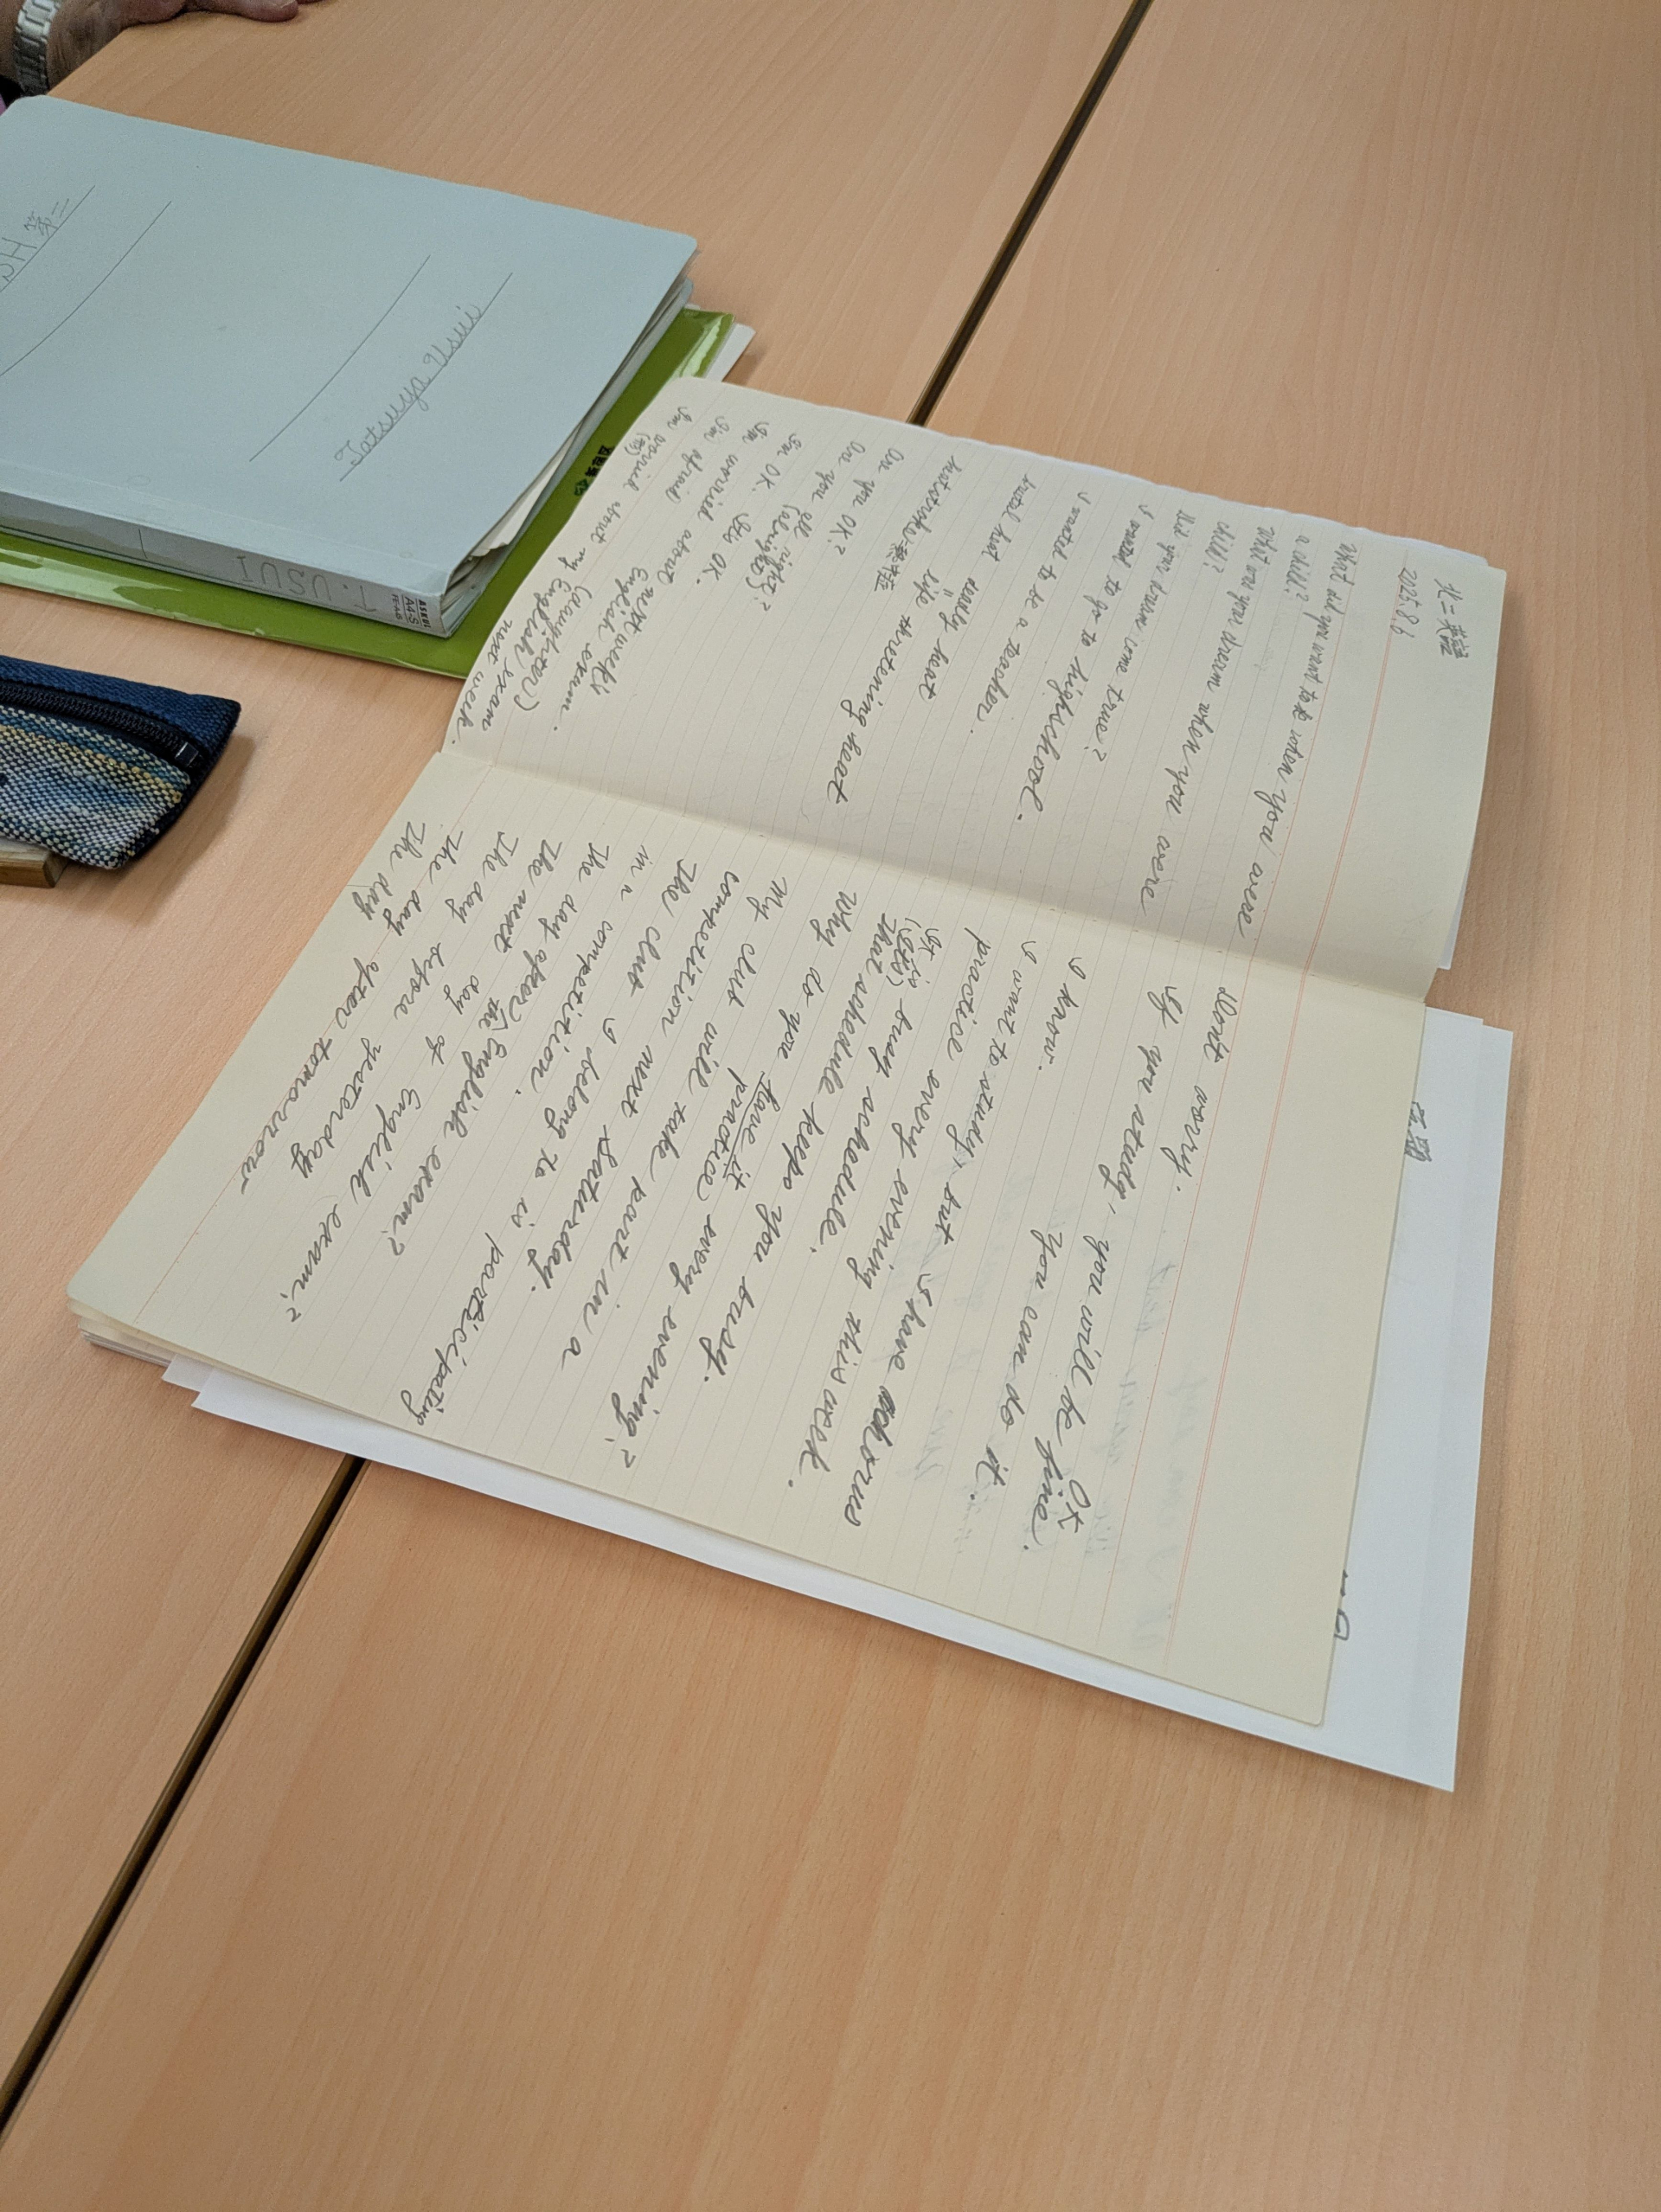 北二英語
2025.8.6
What did you want to be when you were
a child?
What was you dream when you were
child?
Did your dream come true?
I wanted to go to highschool.
I wanted to be a teacher.
brutal heat really heat
life thretening heat
Are you OK?
Are you all right?
(alright)
I'm OK. It's OK.
I'm worried about next week's
I'm afraid English exam.
I'm worried about my (daughter)
English exam
next week.
Don't worry.
If you study, you will be fine.
OK
I know. You can do it.
I want to study, but I have chorus
practice every evening this week.
It is busy schedule.
(It's)
That schedule keeps you busy.
Why do you have it
practice every evening?
My club will take part in a
competition next Saturday.
The club I belong to is participating
in a competition.
The day after the English exam?
The next day of English exam?
The day before yesterday
The day after tomorrow
Tatsuya Usui
T. USUI
ASKUL
A4-S